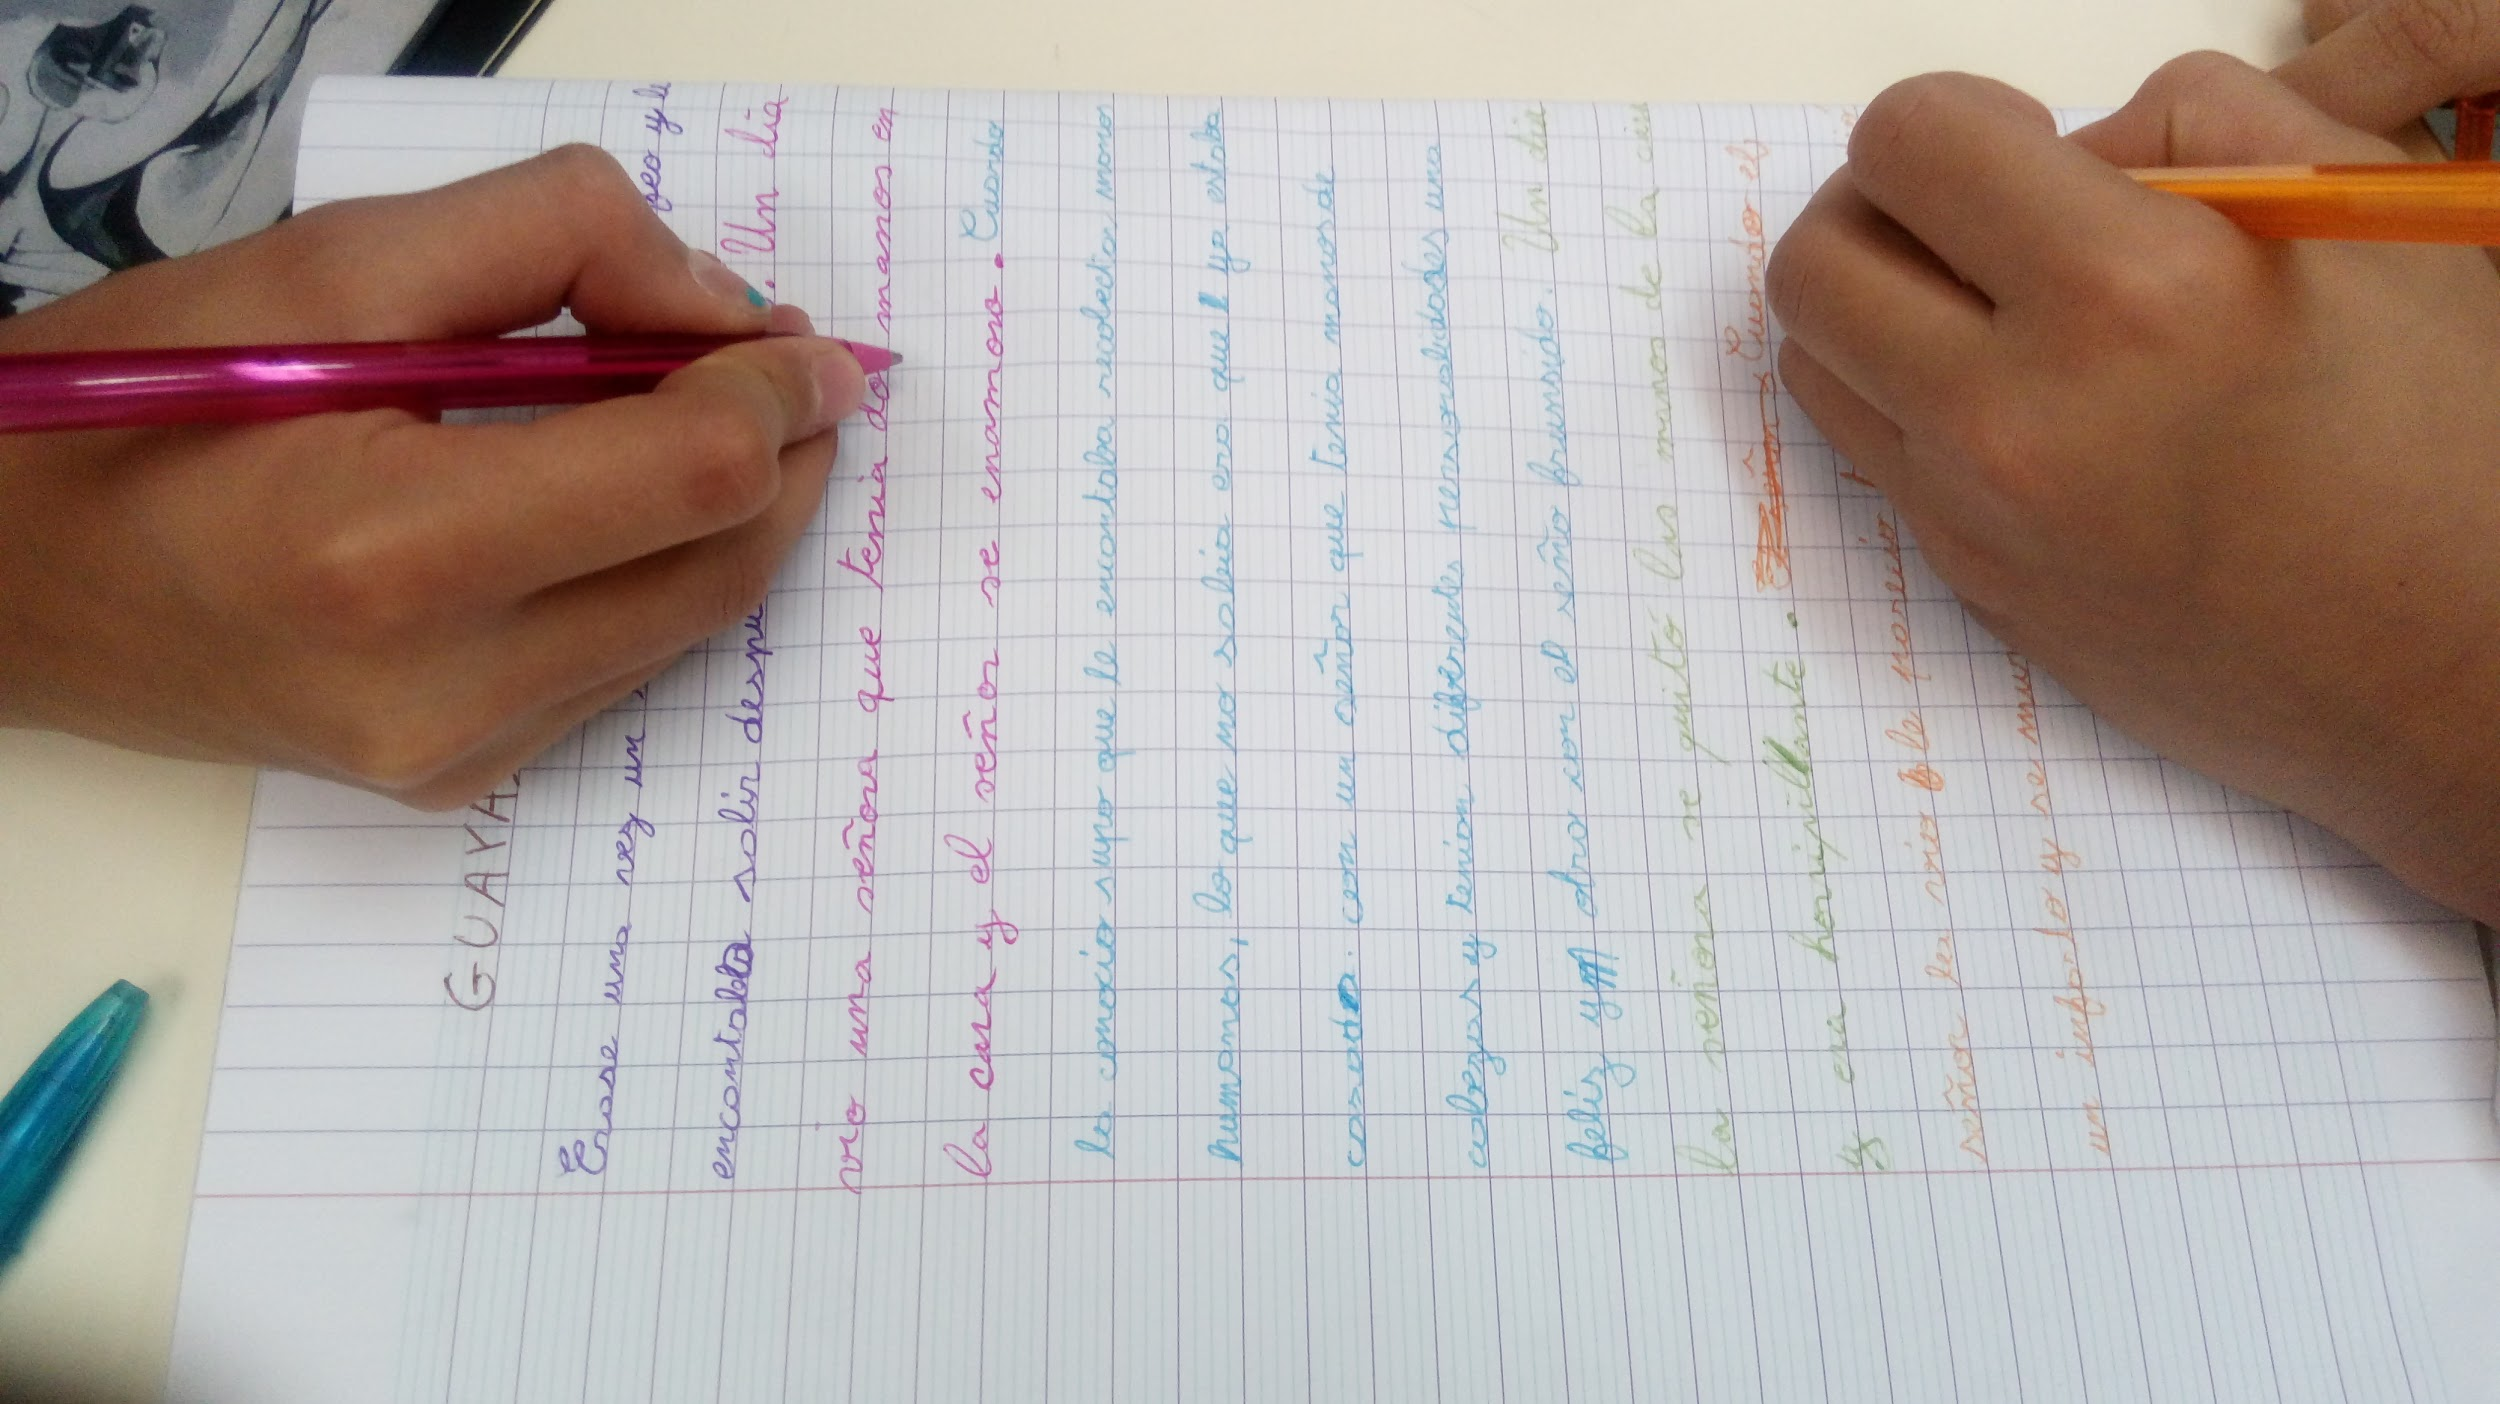 GUAYA
Erase una vez un feo y le
encantaba salir despu . Un dia
vio una señora que tenia do manos en
la cara y el señor se enamoro. Cuando
la conocio supo que le encantaba recolectar manos
humanas, lo que no sabia era que el ya estaba
casado. con un señor que tenia manos de
cabezas y tenian diferentes personalidades una
feliz y otra con el seño frunsido. Un dia
la señora se quitó las manos de la cara
y era horripilante. Cuando el
señor la vio le parecio
un infarto y se mur